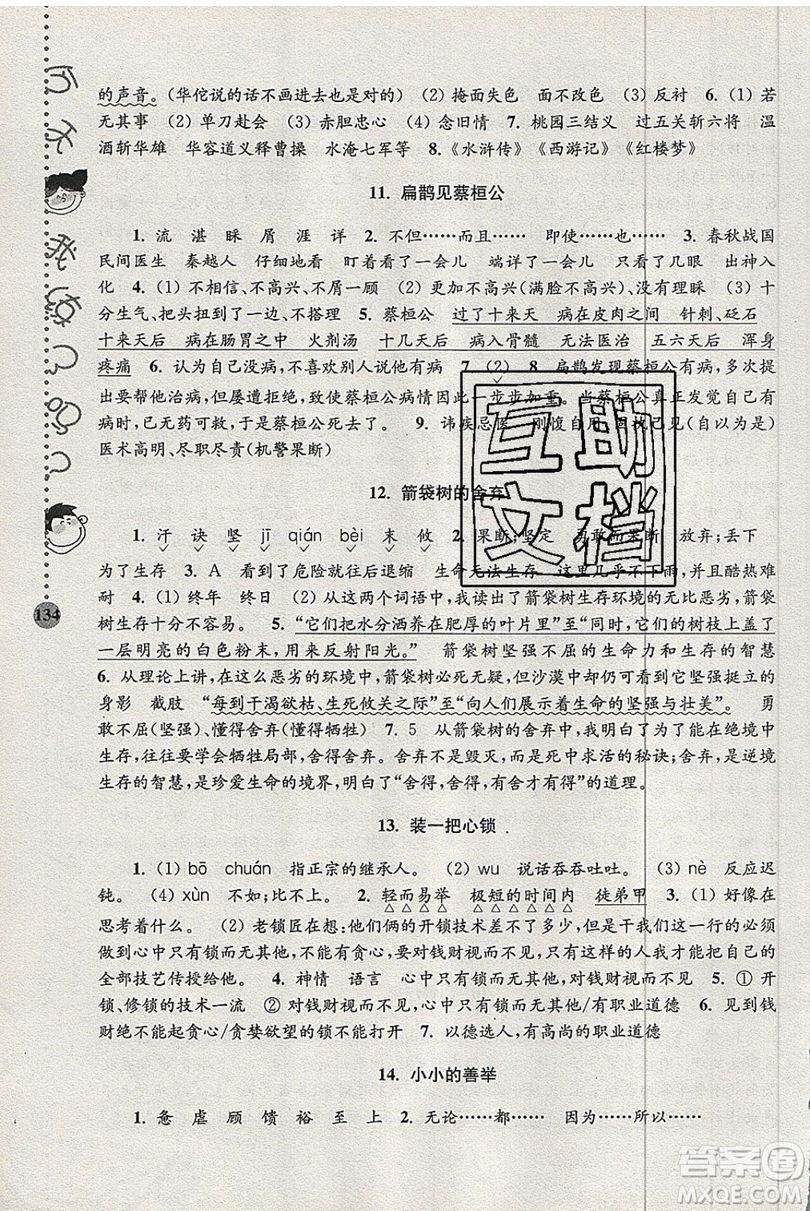 的声音。(华佗说的话不画进去也是对的) (2) 掩面失色 面不改色 (3) 反衬 6. (1) 若
无其事 (2) 单刀赴会 (3) 赤胆忠心 (4) 念旧情 7. 桃园三结义 过五关斩六将 温
酒斩华雄 华容道义释曹操 水淹七军等 8. 《水浒传》《西游记》《红楼梦》
11. 扁鹊见蔡桓公
1. 流 湛 睬 屑 涯 详 2. 不但……而且…… 即使……也…… 3. 春秋战国
民间医生 秦越人 仔细地看 盯着看了一会儿 端详了一会儿 只看了几眼 出神入
化 4. (1) 不相信、不高兴、不屑一顾 (2) 不高兴(满脸不高兴)、没有理睬 (3) 十
分生气、把头扭到了一边、不搭理 5. 蔡桓公 过了十来天 病在皮肉之间 针刺、砭石
十来天后 病在肠胃之中 火剂汤 十几天后 病入骨髓 无法医治 五六天后 浑身
疼痛 6. 认为自己没病,不喜欢别人说他有病 7. (2) 8. 扁鹊发现蔡桓公有病,多次
提出要帮他治病,但屡遭拒绝,致使蔡桓公病情一步步加重。当蔡桓公真正发觉自己有
病时,已无药可救,于是蔡桓公死去了。 9. 讳疾忌医、刚愎自用、固执己见(自以为是)
医术高明、尽职尽责(机警果断)
12. 箭袋树的舍弃
1. 汗 诀 坚 jī qián bèi 末 攸 2. 果断;坚定 勇敢而果断 放弃;丢下
为了生存 3. A 看到了危险就往后退缩 生命无法生存 这里几乎 酷热难
耐 4. (1) 终年 终日 (2) 从这两个词语中,我读出了箭袋树生存环境的无比恶劣,箭袋
树生存十分不容易。 5. “它们把水分洒养在肥厚的叶片里”至“同时,它们的树枝上盖了
一层明亮的白色粉末,用来反射阳光。” 箭袋树坚强不屈的生命力和生存的智慧
6. 从理论上讲,在这么恶劣的环境中,箭袋树必死无疑,但沙漠中满是它们坚强挺立的
身影 截肢 “每到干渴欲枯、生死攸关之际”至“向人们展示着生命的坚强与壮美”。 勇
敢不屈(坚强)、懂得舍弃(懂得牺牲) 7. 5 从箭袋树的舍弃中,我知道了为了能在绝境中生
存,往往要学会牺牲局部,学会舍弃。舍弃不是毁灭,而是死中求活的秘诀;舍弃,是逆境
生存的智慧,是珍爱生命的境界,我明白了“舍得,舍得,有舍才有得”的道理。
13. 装一把心锁
1. (1) bō chuán 指正宗的继承人。 (2) wu 说话吞吞吐吐。 (3) nè 反应迟
钝。 (4) xùn 不如;比不上。 2. 轻而易举 极短的时间内 徒弟甲 3. (1) 好像在
思考着什么。 (2) 老锁匠在想:他们俩的开锁技术差不了多少,但是干我们这一行的必须
做到心中只有锁而无其他,不能有贪心,要对钱财视而不见,只有这样的人才能把自己的
全部技艺传给他。 4. 神情 语言 心中只有锁而无其他,对钱财视而不见 5. ① 开
锁、修锁的技术一流 ② 对钱财视而不见,心中只有锁而无其他/有职业道德 6. 见到钱
财绝不能起贪心/贪婪欲望的锁不能打开 7. 以德选人,有高尚的职业道德
14. 小小的善举
1. 惫 虐 顾 馈 裕 至 上 2. 无论……都…… 因为……所以……
134
互助文档
答案圈
MXQE.COM